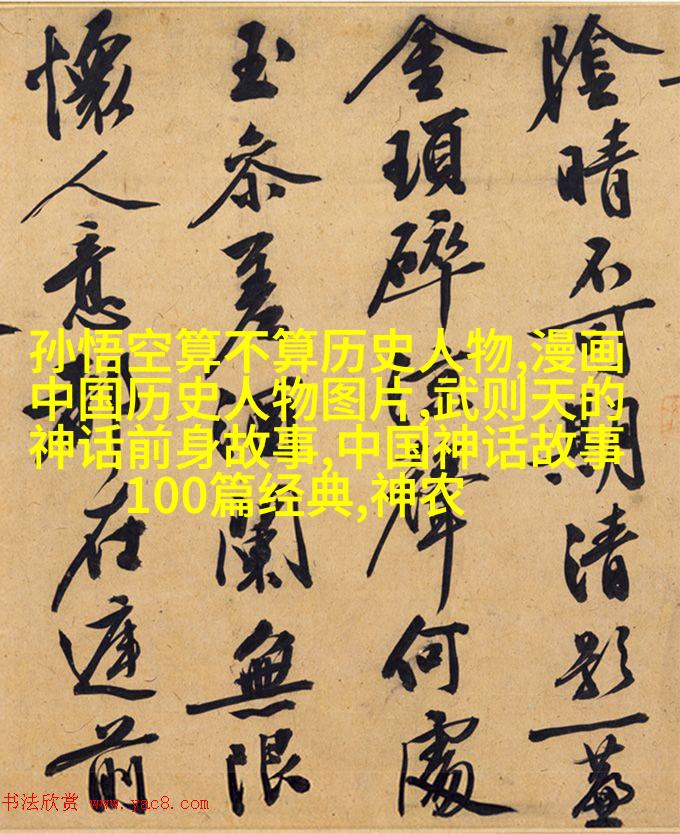 陰晴不可期清影一簾
金瑣碎聲何處
玉參差闌無限
懷人意在前
孙悟空算不算历史人物,漫画
中国历史人物图片,武则天的
神话前身故事,中国神话故事
100篇经典,神农
书法欣赏 www.yac8.com